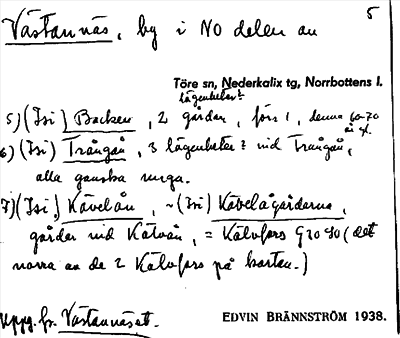 5
Västannäs, by i NO delen av
Töre sn, Nederkalix tg, Norrbottens l.
lägenheter?
5) (Isi) Backen, 2 gårdar, förs 1, denna 60-70
år gl.
6) (Isi) Trångån, 3 lägenheter? vid Trångån,
alla ganska unga.
7) (Isi,) Kävelån, ~ (Isi) Kävelågårdarna,
gårdar vid Kälvån, = Kalvfors G20 90 (det
norra av de 2 Kalvfors på kartan.)
Uppg. fr. Västannäset.
EDVIN BRÄNNSTRÖM 1938.